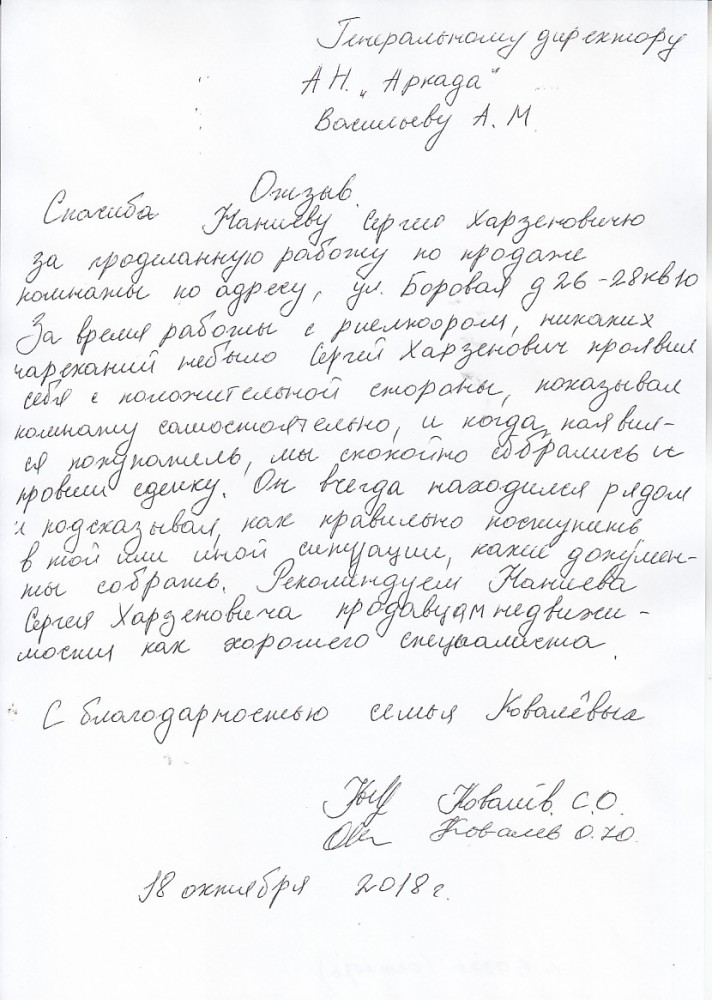 Генеральному директору
АН. „Аркада"
Васильеву А. М.
Отзыв.
Спасиба Наниеву Сергею Харзеновичю
за проделанную работу по продаже
комнаты по адресу, ул. Боровая д 26-28 кв 10
За время работы с риелтором, никаких
чареканий небыло Сергей Харзенович проявил
себя с положительной стороны, показывал
комнату самостоятельно, и когда появил-
ся покупатель, мы спокойно собрались и
провили сделку. Он всегда находился рядом
и подсказывал, как правильно поступить
в той или иной ситуации, какие докумен-
ты собрать. Рекомендуем Наниева
Сергея Харзеновича продавцам недвижи-
мости как хорошего специалиста.
С благодарностью семья Ковалёвых
Ковалёв. С.О.
Ковалев О.Ю.
18 октября 2018 г.